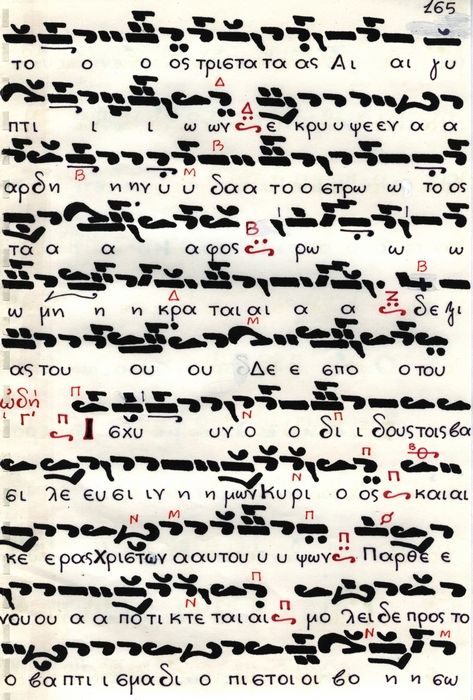 165
το ο ο οςτριστατα ας Αι αι γυ
πτι ι ι ω ων ε κρυψεεν α α
αρδη η ηνυ υ δαα τοο στρω ω τοος
τα α α α αφος ρω ω ω
ω μη η η κρα ταιαι α α δεξι
αςτου ου ου Δε ε σπο ο του
ᾠδή Γ΄ Ισχυ υν ο ο δι ι δουςτοιςβα
σι λε ευσι ιν η ημωνΚυρι ι ο ος καιαι
κε εραςΧριστων ααυτου υ υψων Παρθε ε
νουου α α ποτικτεταιαι μο λειδεπροςτο
ο βαπτι ισμαδι ο πιστοιοι βο η ησω